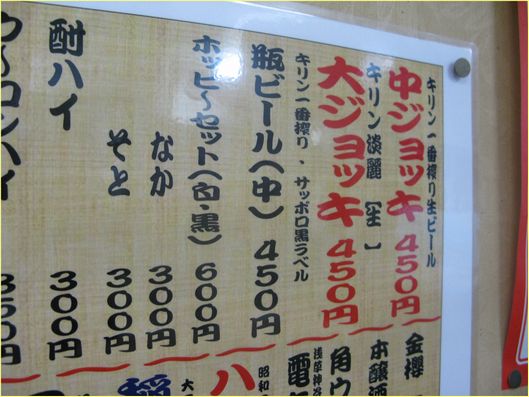 キリン一番搾り生ビール
中ジョッキ 450円
キリン淡麗【生】
大ジョッキ 450円
キリン一番搾り・サッポロ黒ラベル
瓶ビール(中) 450円
ホッピ〜セット(白・黒) 600円
なか 300円
そと 300円
酎ハイ 300円
350円
金櫻
本醸酒
角ウ
浅草神谷
電気
昭和
ハ
大
稲